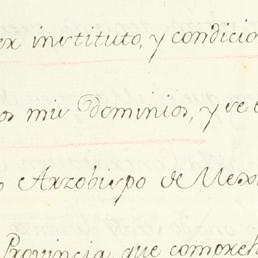 ex instituto, y condicio
os mis Dominios, y se e
o Arzobispo de Mexi
Provincia que compreh